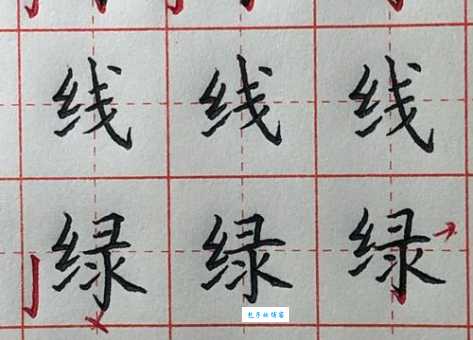 线 线 线
绿 绿 绿